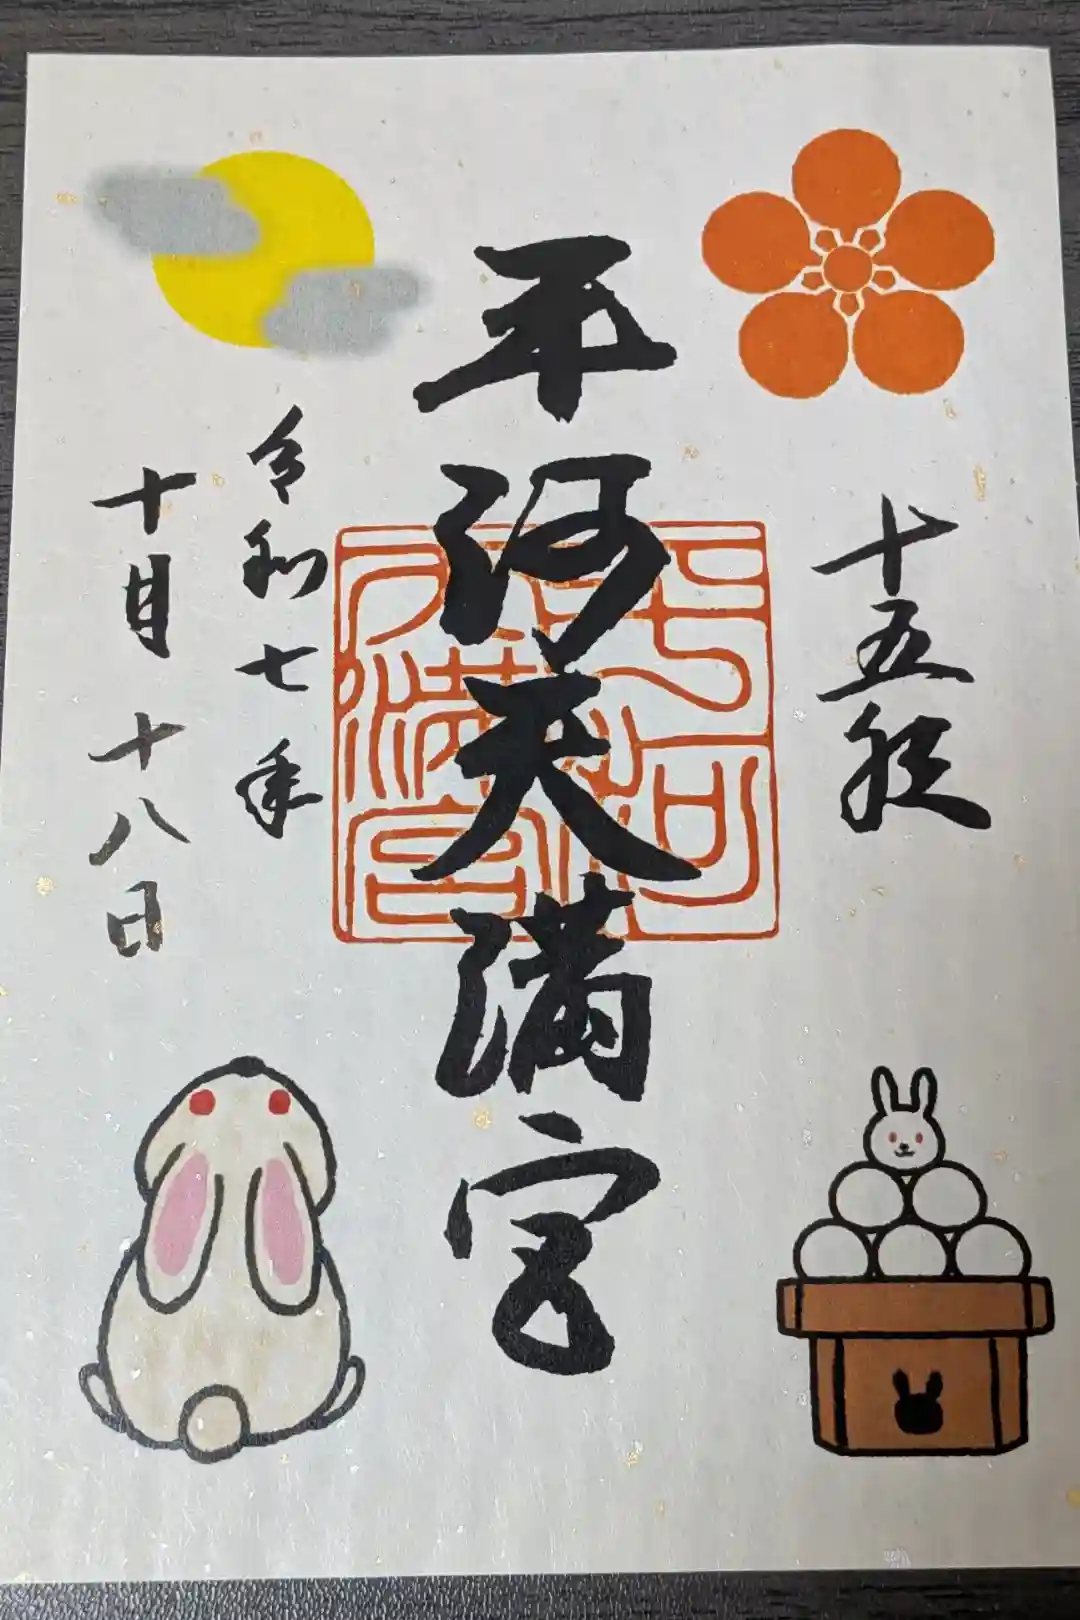 十五夜
平河天満宮
令和七年
十月十八日
平河天満宮